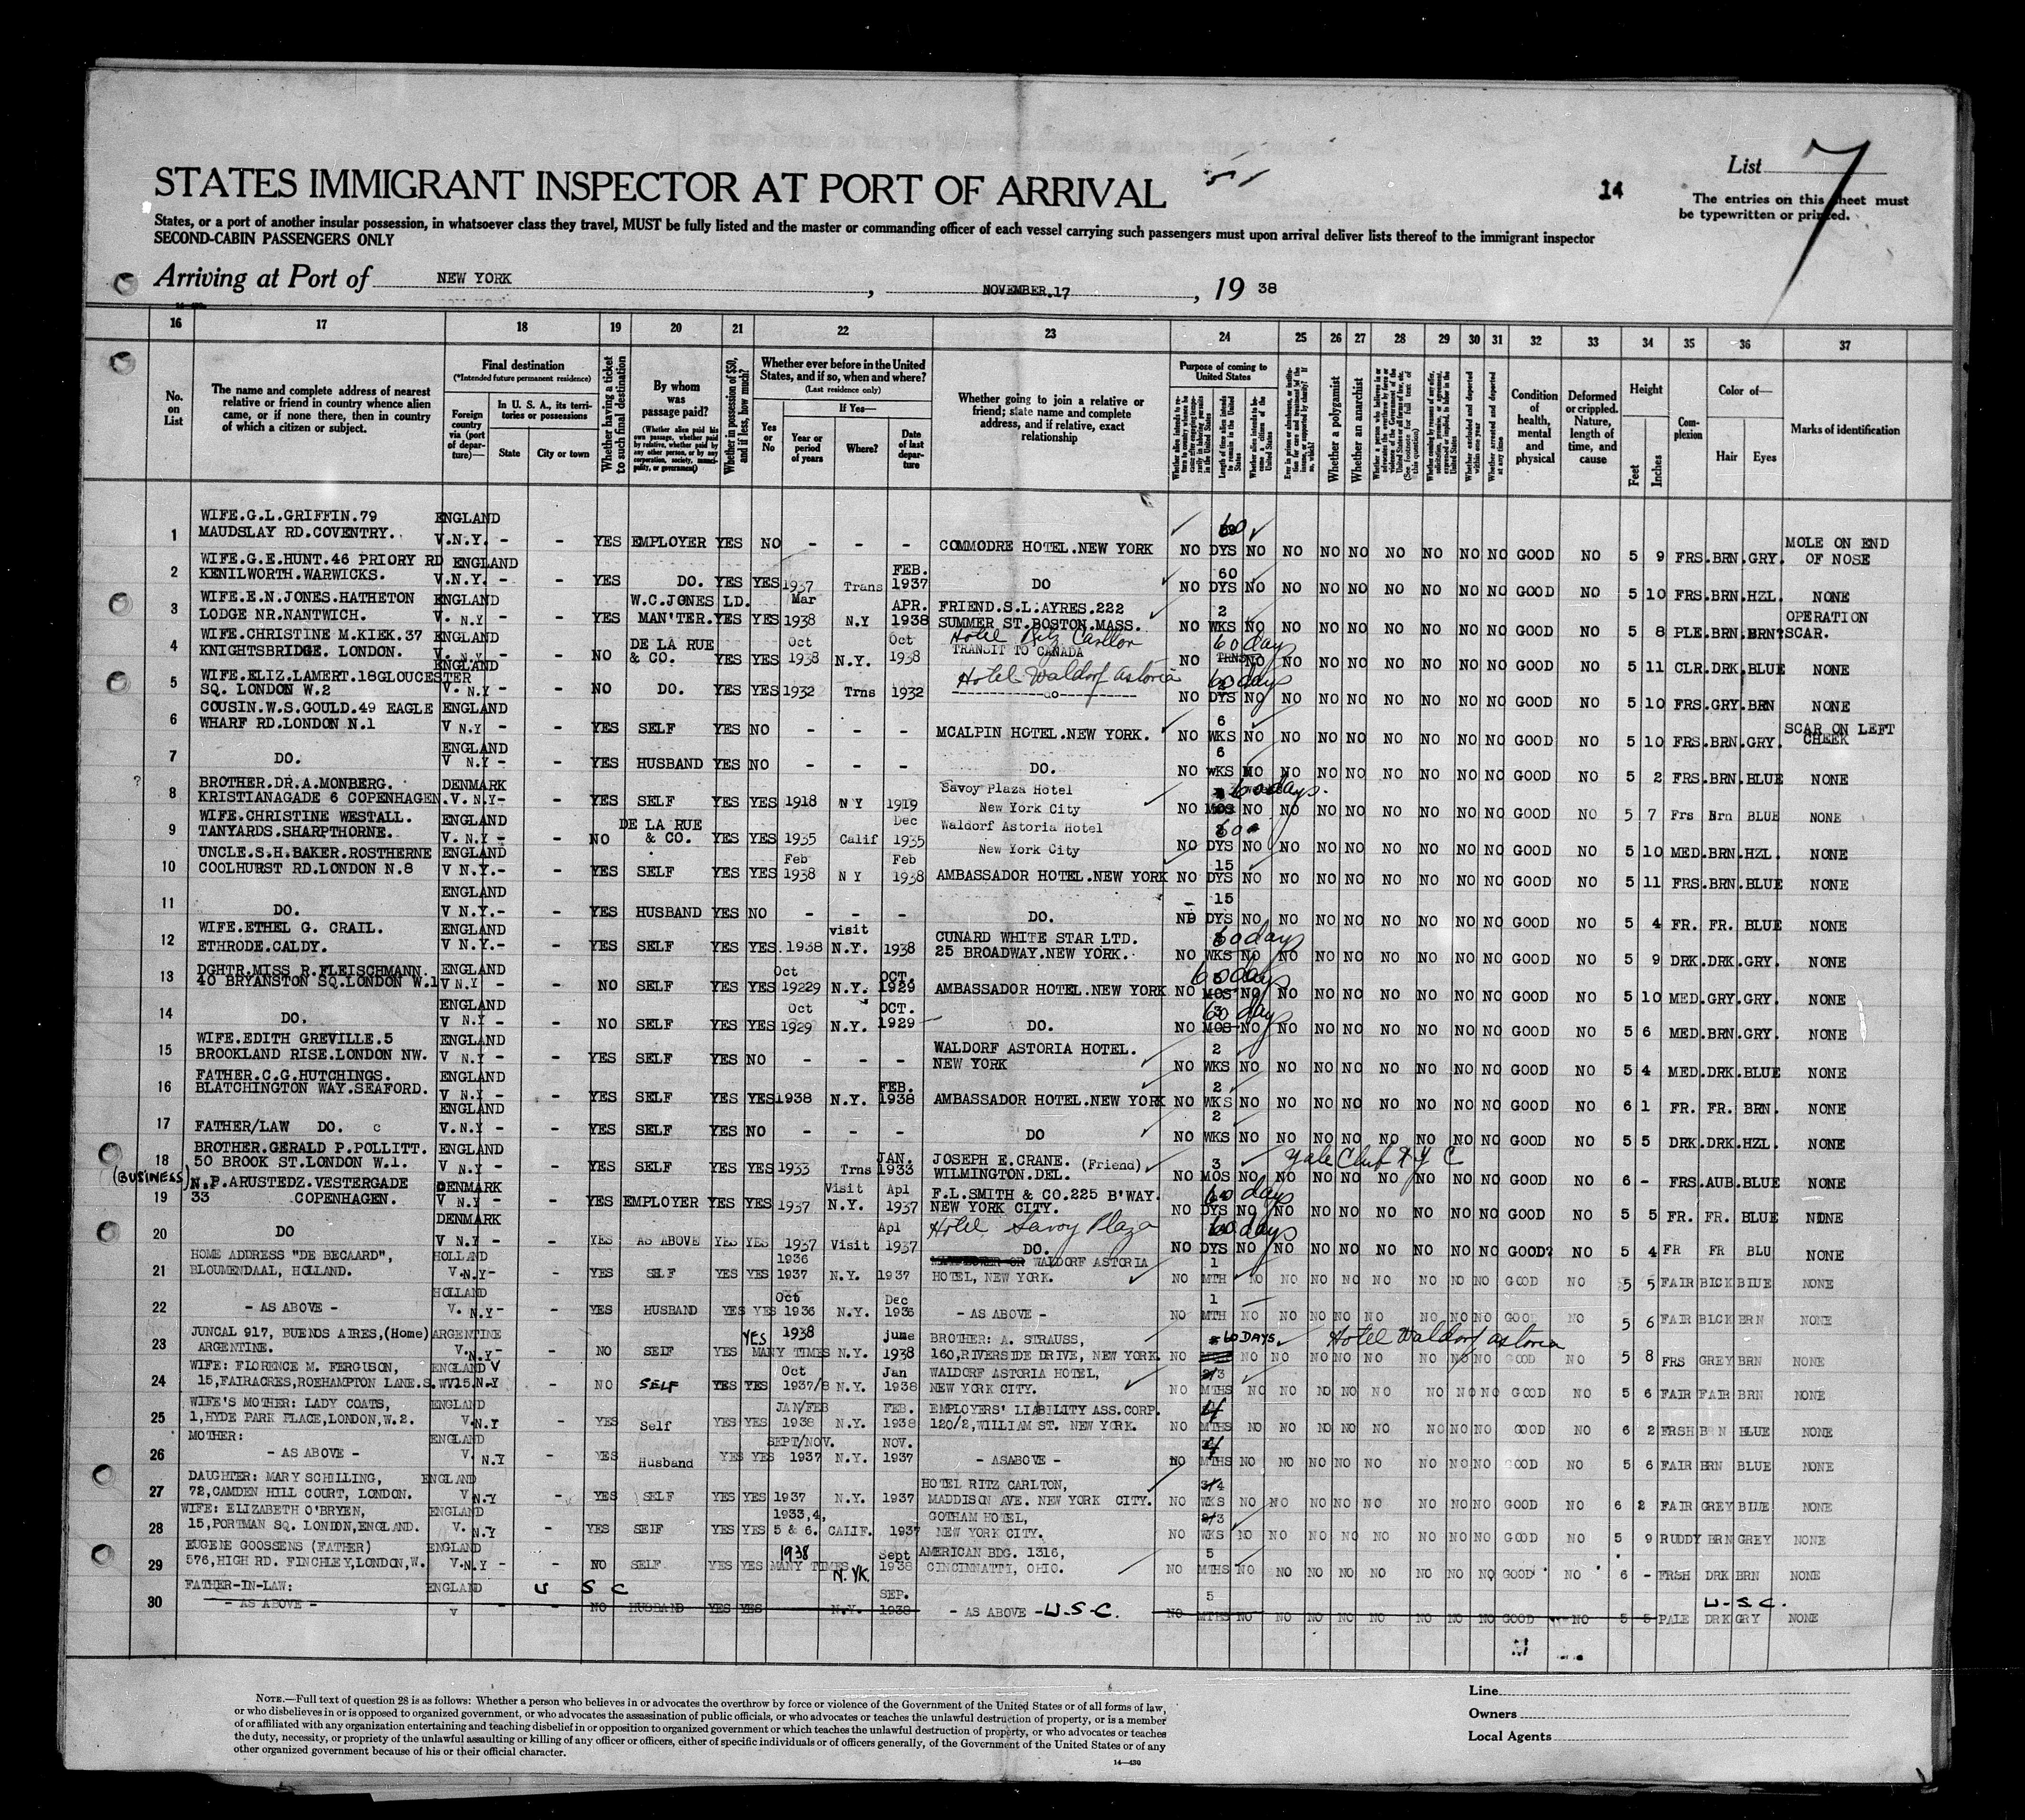 List 7
14
STATES IMMIGRANT INSPECTOR AT PORT OF ARRIVAL
The entries on this sheet must
be typewritten or printed.
States, or a port of another insular possession, in whatsoever class they travel, MUST be fully listed and the master or commanding officer of each vessel carrying such passengers must upon arrival deliver lists thereof to the immigrant inspector
SECOND-CABIN PASSENGERS ONLY
Arriving at Port of NEW YORK, NOVEMBER.17, 19 38
16 17 18 19 20 21 22 23 24 25 26 27 28 29 30 31 32 33 34 35 36 37
No. on List
The name and complete address of nearest relative or friend in country whence alien came, or if none there, then in country of which a citizen or subject.
Final destination
(*Intended future permanent residence)
Foreign country via (port of departure)—
In U. S. A., its territories or possessions
State
City or town
Whether having a ticket to such final destination
By whom was passage paid?
(Whether alien paid his own passage, whether paid by relative, whether paid by any other person, or by any corporation, society, municipality, or government)
Whether in possession of $50, and if less, how much?
Whether ever before in the United States, and if so, when and where?
(Last residence only)
Yes or No
If Yes—
Year or period of years
Where?
Date of last departure
Whether going to join a relative or friend; state name and complete address, and if relative, exact relationship
Purpose of coming to United States
Length of time alien intends to remain in the United States
Whether alien intends to become a citizen of the United States
Whether a polygamist
Whether an anarchist
Whether excluded and deported within one year
Whether arrested and deported at any time
Condition of health, mental and physical
Deformed or crippled. Nature, length of time, and cause
Height
Feet
Inches
Complexion
Color of—
Hair
Eyes
Marks of identification
1 WIFE.G.L.GRIFFIN.79 MAUDSLAY RD.COVENTRY. ENGLAND V.N.Y. - - YES EMPLOYER YES NO - - - COMMODRE HOTEL.NEW YORK NO 60 DYS NO NO NO NO NO NO NO NO GOOD NO 5 9 FRS.BRN.GRY. MOLE ON END OF NOSE
2 WIFE.G.E.HUNT.46 PRIORY RD KENILWORTH.WARWICKS. ENGLAND V.N.Y. - - YES DO. YES YES 1937 Trans FEB. 1937 DO NO 60 DYS NO NO NO NO NO NO NO NO GOOD NO 5 10 FRS.BRN.HZL. NONE
3 WIFE.E.N.JONES.HATHETON LODGE NR.NANTWICH. ENGLAND V. N.Y - - YES W.C.JONES LD. MAN'TER. YES YES Mar 1938 N.Y APR. 1938 FRIEND.S.L.AYRES.222 SUMMER ST.BOSTON.MASS. NO 2 WKS NO NO NO NO NO NO NO NO GOOD NO 5 8 PLE.BRN.BRN OPERATION SCAR.
4 WIFE.CHRISTINE M.KIEK.37 KNIGHTSBRIDGE. LONDON. ENGLAND V. N.Y - - NO DE LA RUE & CO. YES YES Oct 1938 N.Y. Oct 1938 Hotel Ritz Carlton TRANSIT TO CANADA NO 60 days NO NO NO NO NO NO NO NO GOOD NO 5 11 CLR.DRK.BLUE NONE
5 WIFE.ELIZ.LAMERT.18GLOUCESTER SQ. LONDON W.2 ENGLAND V. N.Y - - NO DO. YES YES 1932 Trns 1932 Hotel Waldorf Astoria do NO 60 days DYS NO NO NO NO NO NO NO NO GOOD NO 5 10 FRS.GRY.BRN NONE
6 COUSIN.W.S.GOULD.49 EAGLE WHARF RD.LONDON N.1 ENGLAND V N.Y - - YES SELF YES NO - - - MCALPIN HOTEL.NEW YORK. NO 6 WKS NO NO NO NO NO NO NO NO GOOD NO 5 10 FRS.BRN.GRY. SCAR ON LEFT CHEEK
7 DO. ENGLAND V N.Y - - YES HUSBAND YES NO - - - DO. NO 6 WKS NO NO NO NO NO NO NO NO GOOD NO 5 2 FRS.BRN.BLUE NONE
? 8 BROTHER.DR.A.MONBERG. KRISTIANAGADE 6 COPENHAGEN. DENMARK V. N.Y- - YES SELF YES YES 1918 N Y 1919 Savoy Plaza Hotel New York City NO 60 days. MOS NO NO NO NO NO NO NO NO GOOD NO 5 7 Frs Brn BLUE NONE
9 WIFE.CHRISTINE WESTALL. TANYARDS.SHARPTHORNE. ENGLAND V. N.Y - - NO DE LA RUE & CO. YES YES 1935 Calif Dec 1935 Waldorf Astoria Hotel New York City NO 60 DYS NO NO NO NO NO NO NO NO GOOD NO 5 10 MED.BRN.HZL. NONE
10 UNCLE.S.H.BAKER.ROSTHERNE COOLHURST RD.LONDON N.8 ENGLAND V N.Y.- - YES SELF YES YES Feb 1938 N Y Feb 1938 AMBASSADOR HOTEL.NEW YORK NO 15 DYS NO NO NO NO NO NO NO NO GOOD NO 5 11 FRS.BRN.BLUE NONE
11 DO. ENGLAND V N.Y.- - YES HUSBAND YES NO - - - DO. NO 15 DYS NO NO NO NO NO NO NO NO GOOD NO 5 4 FR. FR. BLUE NONE
12 WIFE.ETHEL G. CRAIL. ETHRODE.CALDY. ENGLAND V N.Y.- - YES SELF YES YES. 1938 visit N.Y. 1938 CUNARD WHITE STAR LTD. 25 BROADWAY.NEW YORK. NO 60 days WKS NO NO NO NO NO NO NO NO GOOD NO 5 9 DRK.DRK.GRY. NONE
13 DGHTR.MISS R.FLEISCHMANN. 40 BRYANSTON SQ.LONDON W.1 ENGLAND V N.Y - - NO SELF YES YES Oct 19229 N.Y. OCT. 1929 AMBASSADOR HOTEL.NEW YORK NO 60 days MOS NO NO NO NO NO NO NO NO GOOD NO 5 10 MED.GRY.GRY. NONE
14 DO. ENGLAND V N.Y - - NO SELF YES YES Oct 1929 N.Y. OCT. 1929 DO. NO 60 day MOS NO NO NO NO NO NO NO NO GOOD NO 5 6 MED.BRN.GRY. NONE
15 WIFE.EDITH GREVILLE.5 BROOKLAND RISE.LONDON NW. ENGLAND V N.Y - - YES SELF YES NO - - - WALDORF ASTORIA HOTEL. NEW YORK NO 2 WKS NO NO NO NO NO NO NO NO GOOD NO 5 4 MED.DRK.BLUE NONE
16 FATHER.C.G.HUTCHINGS. BLATCHINGTON WAY.SEAFORD. ENGLAND V N.Y - - YES SELF YES YES 1938 N.Y. FEB. 1938 AMBASSADOR HOTEL.NEW YORK NO 2 WKS NO NO NO NO NO NO NO NO GOOD NO 6 1 FR. FR. BRN. NONE
17 FATHER/LAW DO. c ENGLAND V.N.Y - - YES SELF YES NO - - - DO NO 2 WKS NO NO NO NO NO NO NO NO GOOD NO 5 5 DRK.DRK.HZL. NONE
18 BROTHER.GERALD P.POLLITT. 50 BROOK ST.LONDON W.1. ENGLAND V N.Y - - YES SELF YES YES 1933 Trns JAN. 1933 JOSEPH E.CRANE. (Friend) WILMINGTON.DEL. NO 3 MOS Yale Club N Y C NO NO NO NO NO NO NO NO GOOD NO 6 - FRS.AUB.BLUE NONE
(BUSINESS) 19 N.P.ARUSTEDZ.VESTERGADE 33 COPENHAGEN. DENMARK V N.Y - - YES EMPLOYER YES YES 1937 Visit N.Y. Apl 1937 F.L.SMITH & CO.225 B'WAY. NEW YORK CITY. NO 60 days DYS NO NO NO NO NO NO NO NO GOOD NO 5 5 FR. FR. BLUE NONE
20 DO DENMARK V N.Y - - YES AS ABOVE YES YES 1937 Visit Apl 1937 Hotel Savoy Plaza DO. NO 60 days DYS NO NO NO NO NO NO NO NO GOOD? NO 5 4 FR FR BLU NONE
21 HOME ADDRESS "DE BECAARD", BLOUMENDAAL, HOLLAND. HOLLAND V.N.Y- - YES SELF YES YES 1936 1937 N.Y. 1937 WALDORF ASTORIA HOTEL, NEW YORK. NO 1 MTH NO NO NO NO NO NO NO NO GOOD NO 5 5 FAIR BLCK BLUE NONE
22 - AS ABOVE - HOLLAND V. N.Y - - YES HUSBAND YES YES Oct 1936 N.Y. Dec 1936 - AS ABOVE - NO 1 MTH NO NO NO NO NO NO NO NO GOOD NO 5 6 FAIR BLCK BRN NONE
23 JUNCAL 917, BUENOS AIRES,(Home) ARGENTINE. ARGENTINE V.N.Y- NO SELF YES YES 1938 MANY TIMES N.Y. June 1938 BROTHER: A. STRAUSS, 160,RIVERSIDE DRIVE, NEW YORK. NO 60 DAYS Hotel Waldorf astoria NO NO NO NO NO NO NO NO GOOD NO 5 8 FRS GREY BRN NONE
24 WIFE: FLORENCE M. FERGUSON, 15,FAIRACRES,ROEHAMPTON LANE.S.W15. ENGLAND V V.N-Y NO SELF YES YES Oct 1937/8 N.Y. Jan 1938 WALDORF ASTORIA HOTEL, NEW YORK CITY. NO 2/3 MTHS NO NO NO NO NO NO NO NO GOOD NO 5 6 FAIR FAIR BRN NONE
25 WIFE'S MOTHER: LADY COATS, 1,HYDE PARK PLACE,LONDON,W.2. ENGLAND V.N.Y - YES Self YES YES JAN/FEB 1938 N.Y. FEB. 1938 EMPLOYERS' LIABILITY ASS.CORP. 120/2,WILLIAM ST. NEW YORK. NO 4 MTHS NO NO NO NO NO NO NO NO GOOD NO 6 2 FRSH BRN BLUE NONE
26 MOTHER: - AS ABOVE - ENGLAND V. N.Y - YES Husband YES YES SEPT/NOV. 1937 N.Y. NOV. 1937 - ASABOVE - NO 4 MTHS NO NO NO NO NO NO NO NO GOOD NO 5 6 FAIR BRN BLUE NONE
27 DAUGHTER: MARY SCHILLING, 72,CAMDEN HILL COURT, LONDON. ENGLAND V N.Y - YES SELF YES YES 1937 N.Y. 1937 HOTEL RITZ CARLTON, MADDISON AVE. NEW YORK CITY. NO 3/4 WKS NO NO NO NO NO NO NO NO GOOD NO 6 2 FAIR GREY BLUE NONE
28 WIFE: ELIZABETH O'BRYEN, 15,PORTMAN SQ. LONDON,ENGLAND. ENGLAND V. N.Y - YES SELF YES YES 1933,4, 5 & 6. CALIF. 1937 GOTHAM HOTEL, NEW YORK CITY. NO 2/3 WKS NO NO NO NO NO NO NO NO GOOD NO 5 9 RUDDY BRN GREY NONE
29 EUGENE GOOSSENS (FATHER) 576,HIGH RD. FINCHLEY,LONDON,W. ENGLAND V.N.Y - - NO SELF YES YES 1938 MANY TIMES N.YK. Sept 1938 AMERICAN BDG. 1316, CINCINNATTI, OHIO. NO 5 MTHS NO NO NO NO NO NO NO NO GOOD NO 6 - FRSH DRK BRN NONE
30 FATHER-IN-LAW: - AS ABOVE - ENGLAND V U S C NO HUSBAND YES YES N.Y. SEP. 1938 - AS ABOVE - U-S-C. NO 5 MTHS NO NO NO NO NO NO NO NO GOOD NO 5 5 PALE DRK GRY U-S-C. NONE
NOTE.—Full text of question 28 is as follows: Whether a person who believes in or advocates the overthrow by force or violence of the Government of the United States or of all forms of law,
or who disbelieves in or is opposed to organized government, or who advocates the assassination of public officials, or who advocates or teaches the unlawful destruction of property, or is a member
of or affiliated with any organization entertaining and teaching disbelief in or opposition to organized government or which teaches the unlawful destruction of property, or who advocates or teaches
the duty, necessity, or propriety of the unlawful assaulting or killing of any officer or officers, either of specific individuals or of officers generally, of the Government of the United States or of any
other organized government because of his or their official character.
14—430
Line
Owners
Local Agents